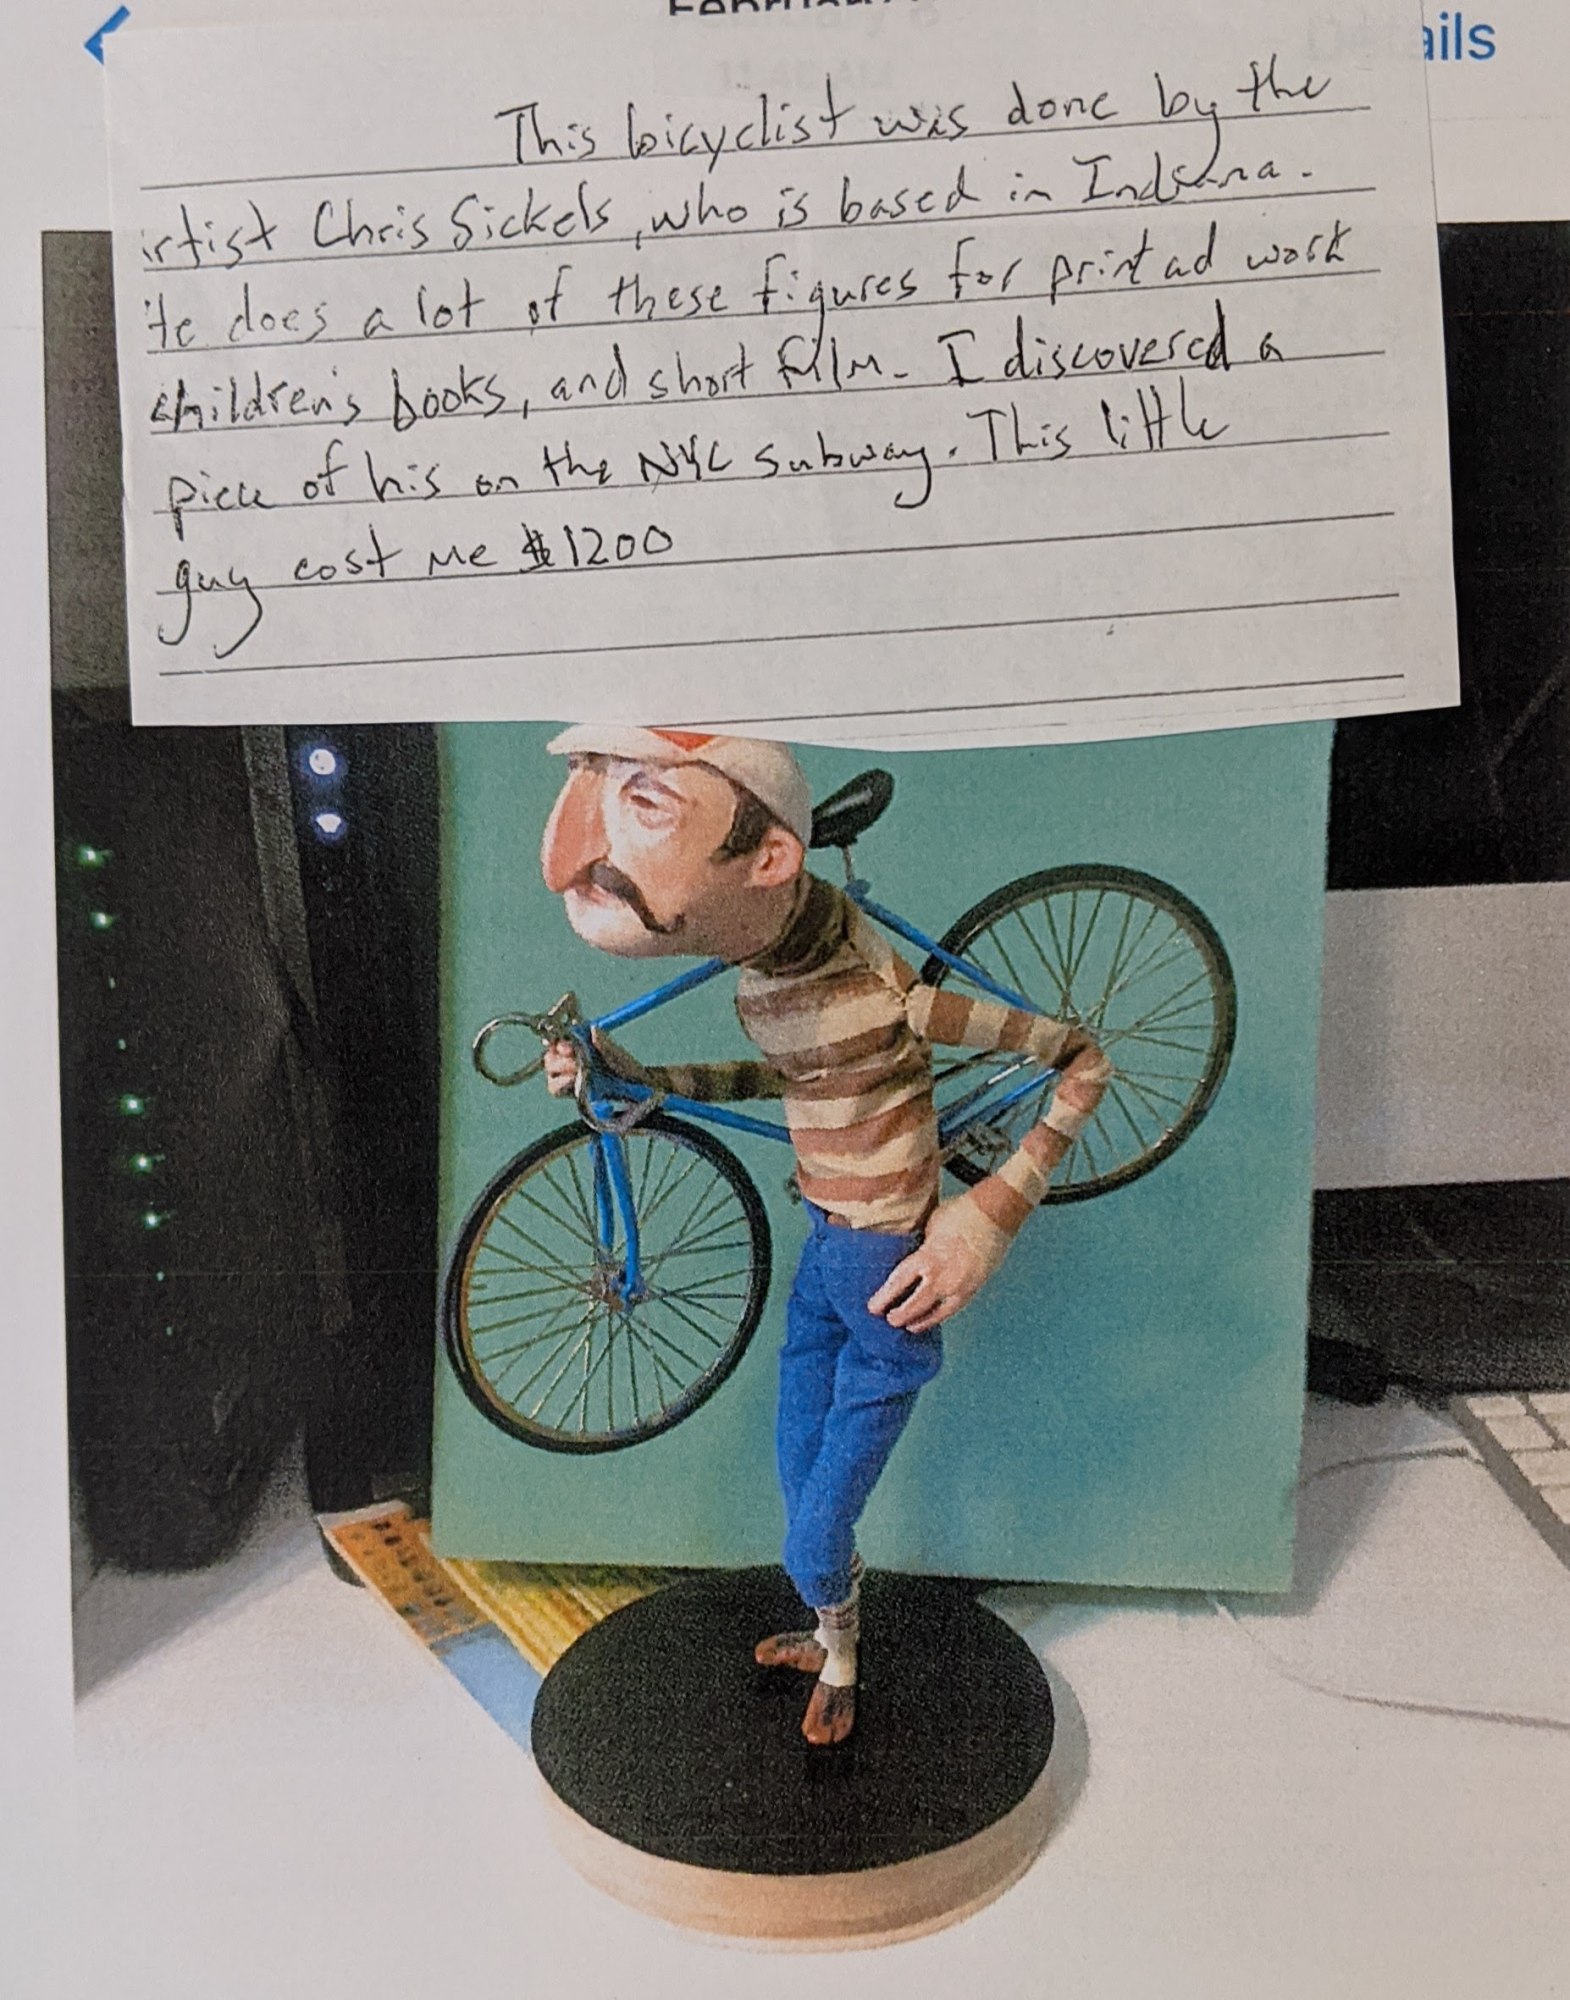 ails
This bicyclist was done by the
rtist Chris Sickels, who is based in Indiana.
He does a lot of these figures for print ad work
children's books, and short film. I discovered a
piece of his on the NYC subway. This little
guy cost me $1200